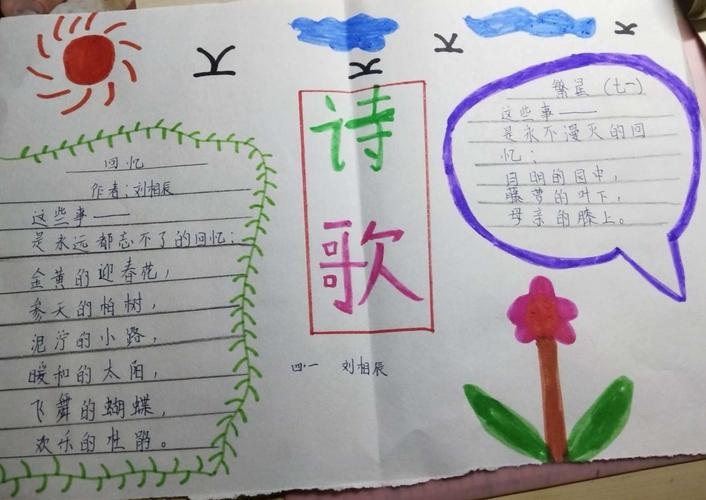 回忆
作者:刘相辰
这些事——
是永远都忘不了的回忆:
金黄的迎春花,
参天的怕树,
泥泞的小路,
暖和的太阳,
飞舞的蝴蝶,
欢乐的
诗
歌
四·一 刘相辰
繁星(七一)
这些事——
是永不漫灭的回
忆:
月明的园中,
藤萝的叶下,
母亲的膝上。